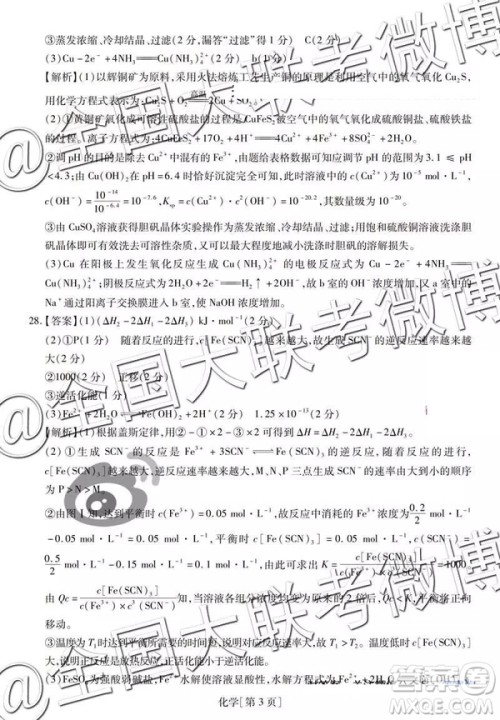 ③蒸发浓缩、冷却结晶、过滤(2分,漏答“过滤”得1分) C(2分)
(3)Cu-2e⁻+4NH₃══Cu(NH₃)₄²⁺(2分)
【解析】(1)以辉铜矿为原料,采用火法熔炼工艺生产铜的原理是利用空气中的氧气氧化Cu₂S,
用化学方程式表示为:Cu₂S+O₂ 高温 2Cu+SO₂。
(2)①黄铜矿氧化成可溶性硫酸盐的过程是CuFeS₂被空气中的氧气氧化成硫酸铜盐、硫酸铁盐
的过程。离子方程式为:4CuFeS₂+17O₂+4H⁺══4Cu²⁺+4Fe³⁺+8SO₄²⁻+2H₂O。
②调pH的目的是除去Cu²⁺中混有的Fe³⁺,由题给表格数据可知应调节pH的范围为3.1≤pH
<4.3;由Cu²⁺在pH=6.4时恰好沉淀完全可知,此时溶液中的c(Cu²⁺)为10⁻⁵mol·L⁻¹,
c(OH⁻)=10⁻¹⁴/10⁻⁶·⁴=10⁻⁷·⁶,Kₛₚ=c(Cu²⁺)·c²(OH⁻)=10⁻²⁰·²,其数量级为10⁻²¹。
③由CuSO₄溶液获得胆矾晶体实验操作为蒸发浓缩、冷却结晶、过滤;用饱和硫酸铜溶液洗涤胆
矾晶体即可有效洗去可溶性杂质,又可以最大程度地减小洗涤时胆矾的溶解。
(3)Cu在阳极上发生氧化反应生成Cu(NH₃)₄²⁺的电极反应式为Cu-2e⁻+4NH₃══
Cu(NH₃)₄²⁺,阴极反应式为2H₂O+2e⁻══H₂↑+2OH⁻,故b室的OH⁻浓度增大,又a室中的
Na⁺通过阳离子交换膜进入b室,使NaOH浓度增加。
28.【答案】(1)(ΔH₂-2ΔH₁-2ΔH₃)kJ·mol⁻¹(2分)
(2)①P(1分) 随着反应的进行,c[Fe(SCN)₃]越来越大,故生成SCN⁻的逆反应速率越来越
大(2分)
②1000(2分) 正移(2分)
③逆活化能(1分)
(3)Fe²⁺+2H₂O⇌Fe(OH)₂+2H⁺(2分) 1.25×10⁻¹³(2分)
【解析】(1)根据盖斯定律,用②-①×2-③×2可得到ΔH=ΔH₂-2ΔH₁-2ΔH₃。
(2)①生成SCN⁻的反应是Fe³⁺+3SCN⁻⇌Fe(SCN)₃的逆反应,随着反应的进行,
c[Fe(SCN)₃]越来越大,逆反应速率越来越大,M、N、P三点生成SCN⁻的速率由大到小的顺序
为P>N>M。
②由图Ⅰ知,达到平衡时c(Fe³⁺)=0.05 mol·L⁻¹,故反应中消耗的Fe³⁺浓度为0.2/2
-0.05 mol·L⁻¹=0.05 mol·L⁻¹,c[Fe(SCN)₃]=0.05 mol·L⁻¹,平衡时c(SCN⁻)=
0.5/2 mol·L⁻¹-0.15 mol·L⁻¹=0.1 mol·L⁻¹,由此可求出K=c[Fe(SCN)₃]/c(Fe³⁺)×c³(SCN⁻)=1000
由Qc=c[Fe(SCN)₃]/c(Fe³⁺)×c³(SCN⁻)知,当溶液各组分浓度均变为原来的2倍后,Qc<K,平衡将正向
移动。
③温度为T₁时达到平衡所需要的时间短,说明对应反应速率大,故T₁>T₂。温度高,c[Fe(SCN)₃]
小,说明反应是放热反应,正活化能小于逆活化能。
(3)FeSO₄为强酸弱碱盐,Fe²⁺水解使溶液显酸性,水解方程式为Fe²⁺+2H₂O
化学[第3页]
@全国大联考微博
@全国大联考微博
@全国大联考微博